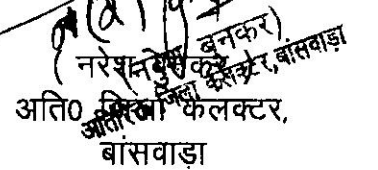 (नरेश बुनकर)
अति0 जिला कलक्टर,
बांसवाड़ा
अतिरिक्त जिला कलेक्टर, बांसवाड़ा